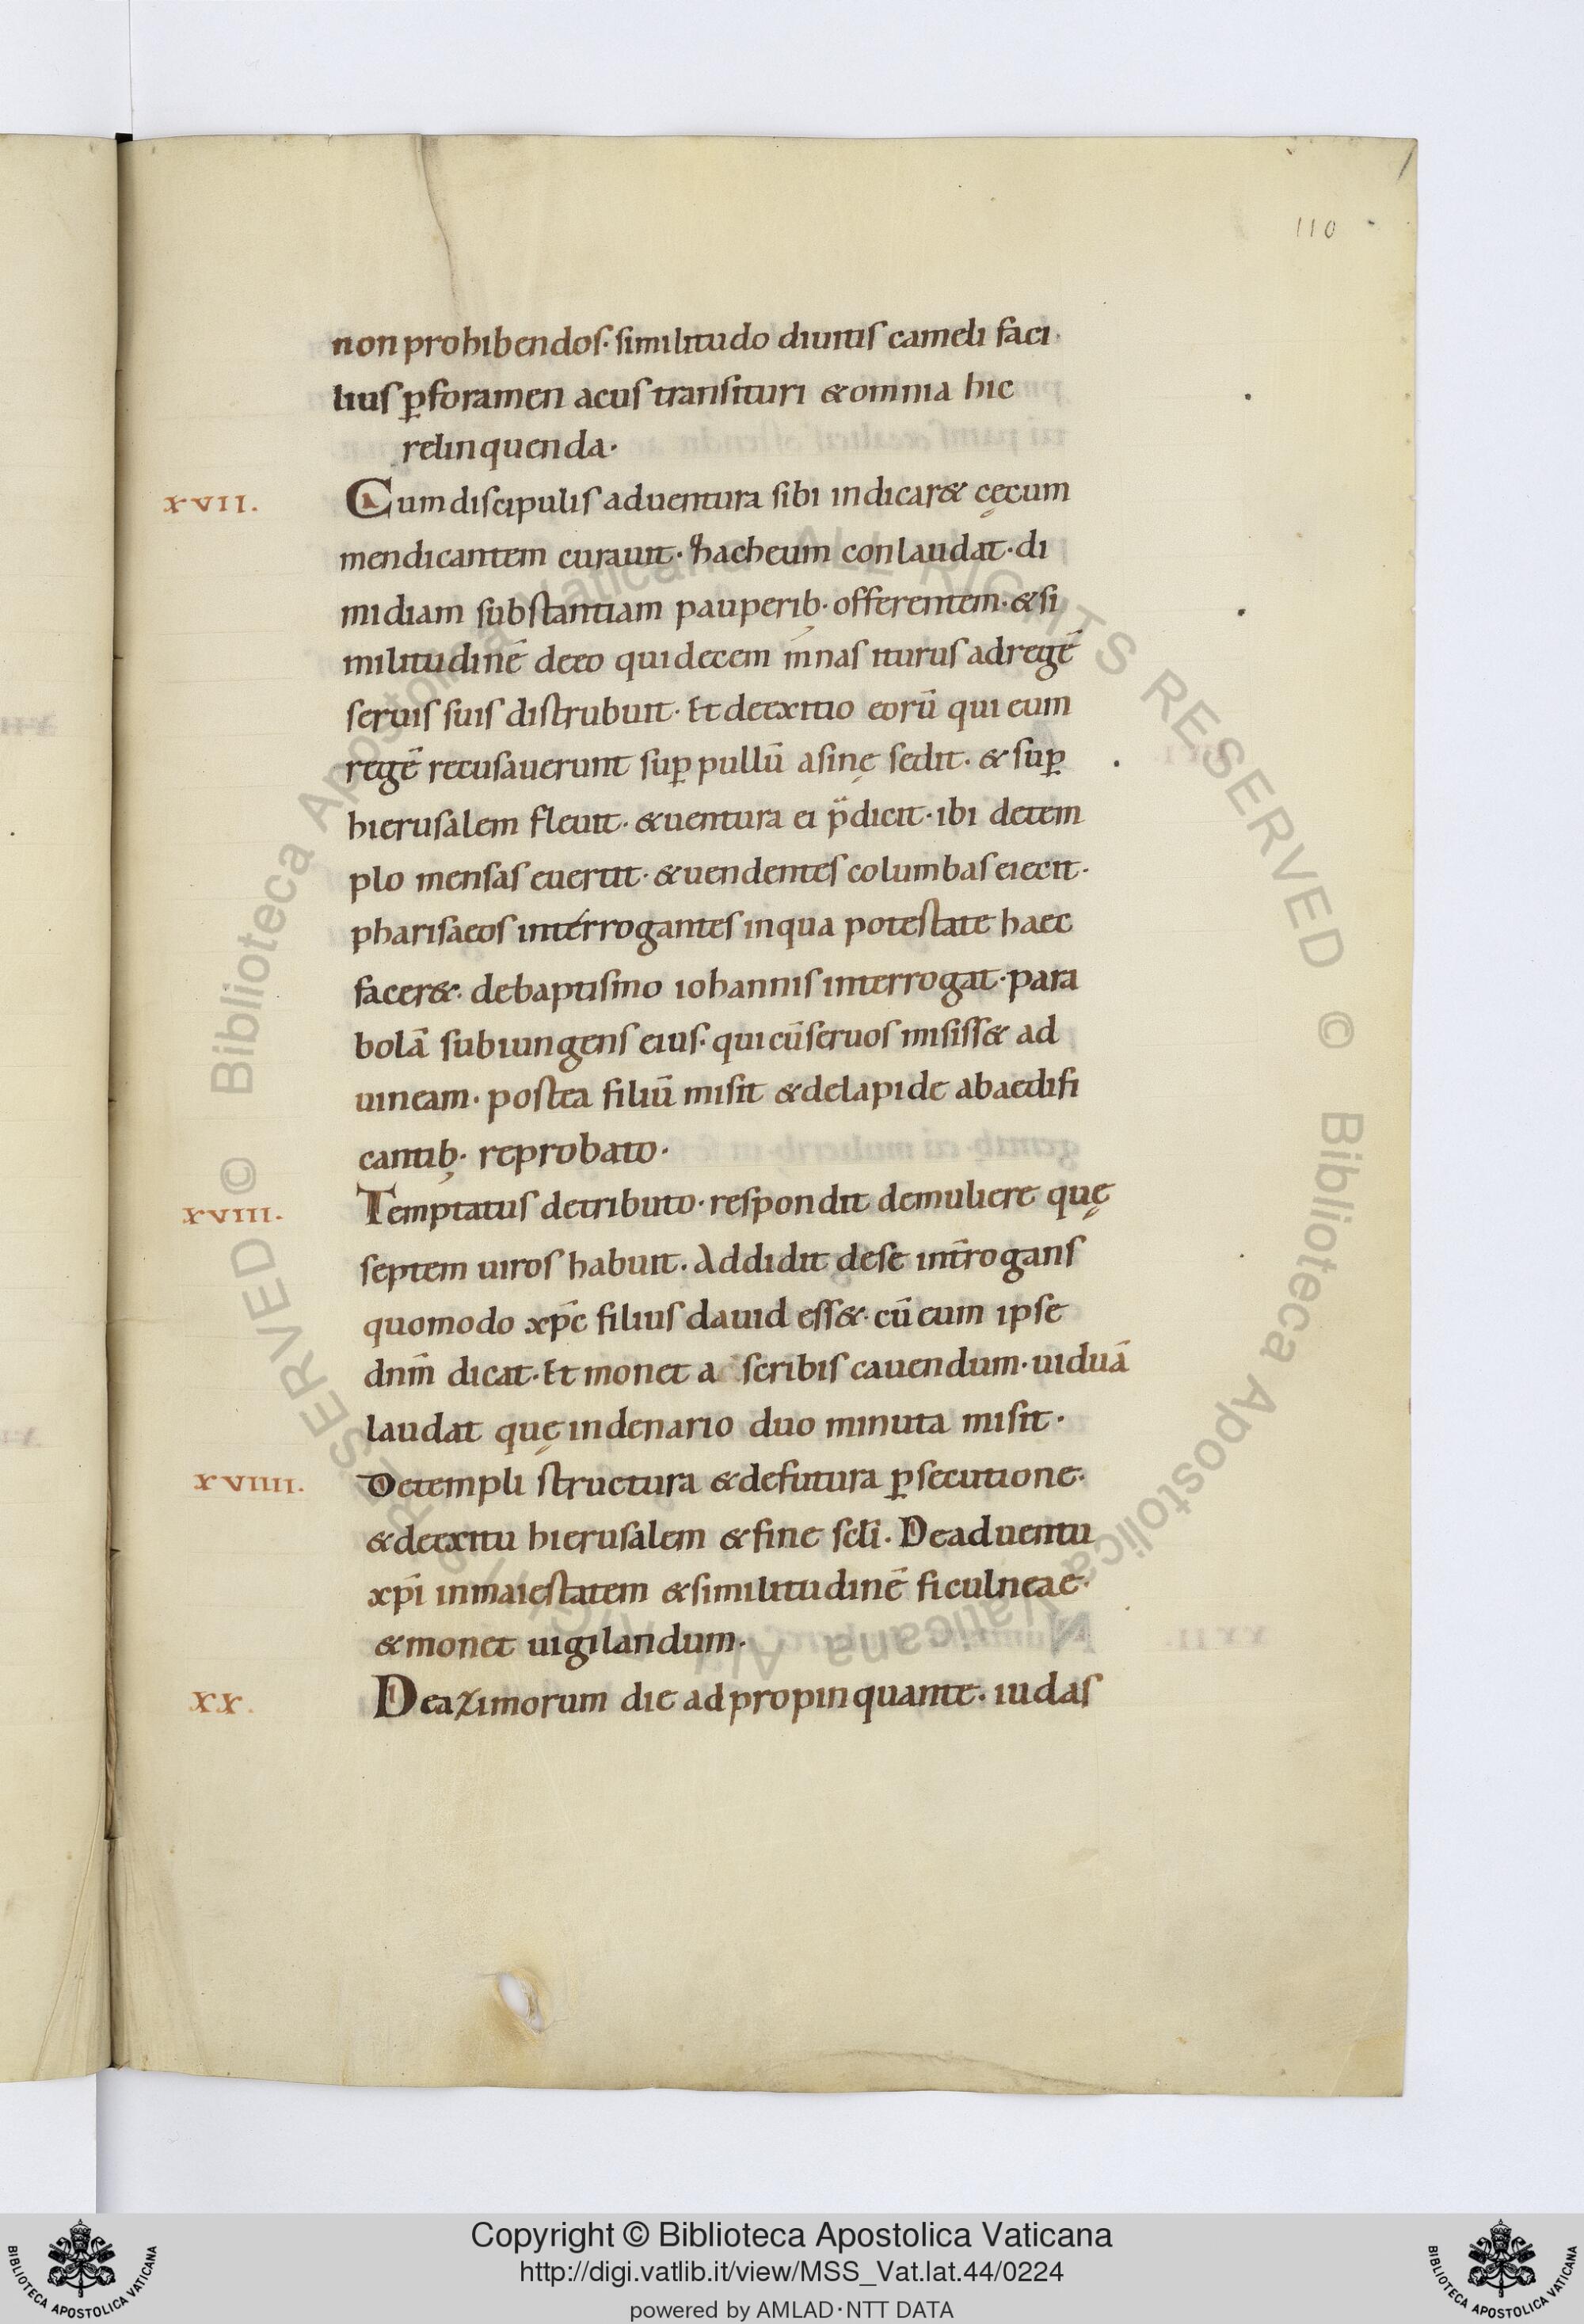 110
non prohibendos· similitudo diuitis cameli faci
lius ꝑ foramen acus transituri & omnia hic
relinquenda·
XVII. Cum discipulis aduentura sibi indicar& cęcum
mendicantem curauit· hacheum conlaudat· di
midiam substantiam pauperib· offerentem· & si
militudinē de eo qui decem mnas iturus ad regē
seruis suis distrubuit· Et de exitio eorū qui eum
regē recusauerunt suꝑ pullū asinę sedit· & suꝑ
hierusalem fleuit· & uentura ei p̈dicit· ibi de tem
plo mensas euertit· & uendentes columbas eiecit·
pharisaeos interrogantes in qua potestate haec
facer&· de baptismo iohannis interrogat· para
bolā subiungens eius· qui cū seruos misiss& ad
uineam· postea filiū misit & de lapide ab aedifi
cantib· reprobato·
XVIII. Temptatus de tributo· respondit de muliere quę
septem uiros habuit· Addidit de se int̄rogans
quomodo xp̄c filius dauid ess&· cū eum ipse
dnm̄ dicat· Et monet a scribis cauendum· uiduā
laudat quę in denario duo minuta misit·
XVIIII. De templi structura & de futura ꝑsecutione·
& de exitu hierusalem & fine scl̄i· De aduentu
xp̄i in maiestatem & similitudinē ficulneae·
& monet uigilandum·
XX. De azimorum die adpropinquante· iudas
© Biblioteca Apostolica Vaticana ALL RIGHTS RESERVED
Copyright © Biblioteca Apostolica Vaticana
http://digi.vatlib.it/view/MSS_Vat.lat.44/0224
powered by AMLAD·NTT DATA
BIBLIOTECA APOSTOLICA VATICANA
BIBLIOTECA APOSTOLICA VATICANA